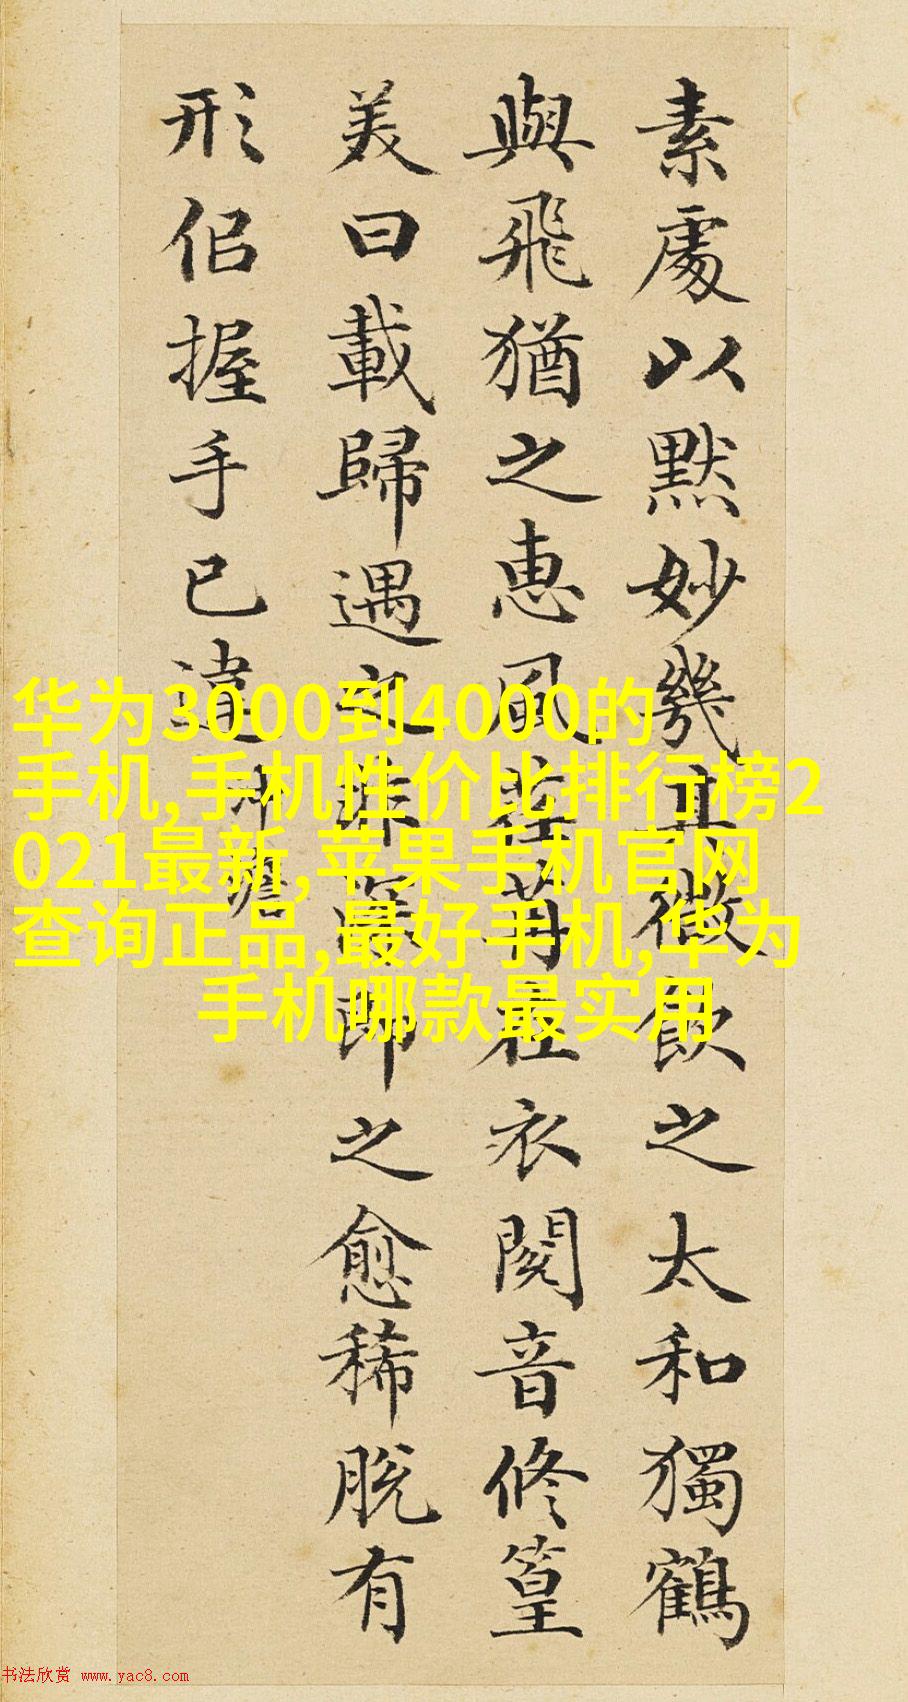 素處以默妙幾其微飲之太和獨鶴
與飛猶之惠風荏苒在衣閱音修篁
美曰載歸遇之非深即之愈稀脫有
形佀握手已違
沖澹
华为3000到4000的
手机,手机性价比排行榜2
021最新,苹果手机官网
查询正品,最好手机,华为
手机哪款最实用
书法欣赏 www.yac8.com